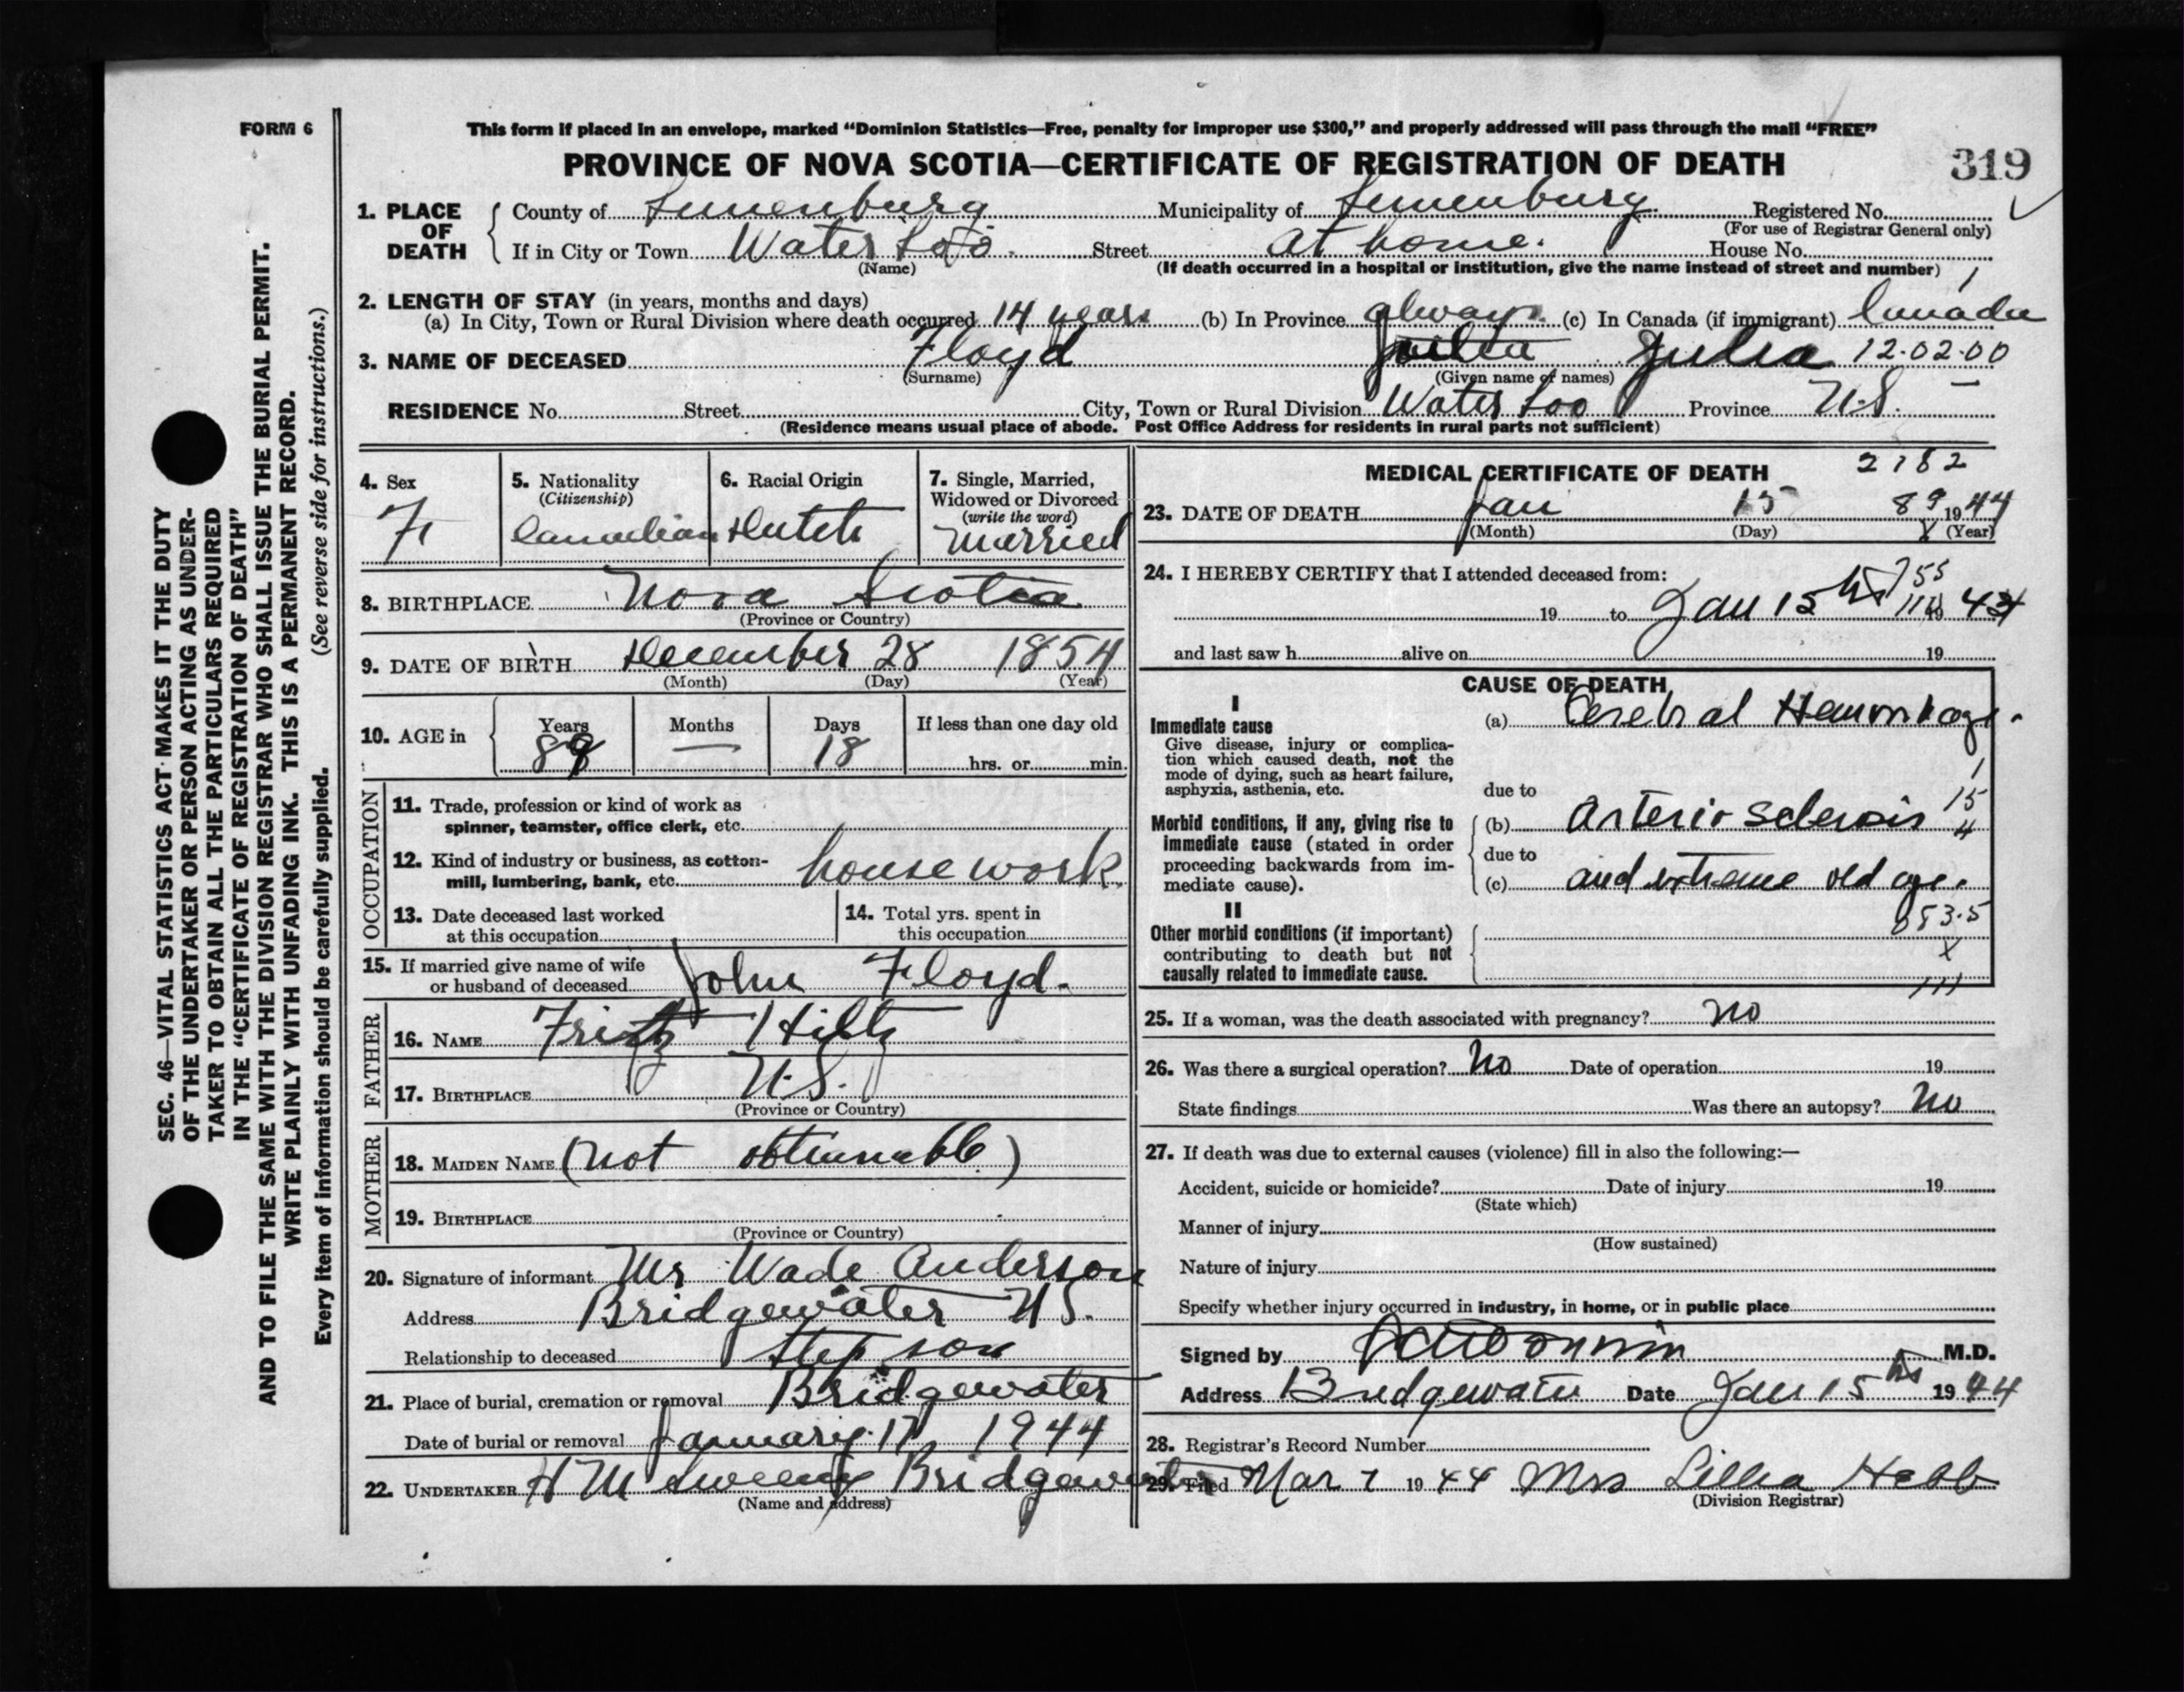 FORM 6
This form if placed in an envelope, marked “Dominion Statistics—Free, penalty for improper use $300,” and properly addressed will pass through the mail “FREE”
PROVINCE OF NOVA SCOTIA—CERTIFICATE OF REGISTRATION OF DEATH
319
1. PLACE OF DEATH
County of Lunenburg Municipality of Lunenburg Registered No.
(For use of Registrar General only)
If in City or Town Water Loo Street at home. House No.
(Name)
(If death occurred in a hospital or institution, give the name instead of street and number)
2. LENGTH OF STAY (in years, months and days)
(a) In City, Town or Rural Division where death occurred 14 years (b) In Province always (c) In Canada (if immigrant) Canada
3. NAME OF DECEASED Floyd Julia 12·02·00
(Surname) (Given name or names)
RESIDENCE No. Street City, Town or Rural Division Water Loo Province N.S. —
(Residence means usual place of abode. Post Office Address for residents in rural parts not sufficient)
4. Sex
F
5. Nationality
(Citizenship)
Canadian
6. Racial Origin
Dutch
7. Single, Married,
Widowed or Divorced
(write the word)
Married
8. BIRTHPLACE Nova Scotia
(Province or Country)
9. DATE OF BIRTH December 28 1854
(Month) (Day) (Year)
10. AGE in
Years Months Days If less than one day old
89 — 18 hrs. or min.
OCCUPATION
11. Trade, profession or kind of work as
spinner, teamster, office clerk, etc.
12. Kind of industry or business, as cotton-
mill, lumbering, bank, etc. house work.
13. Date deceased last worked
at this occupation
14. Total yrs. spent in
this occupation
15. If married give name of wife
or husband of deceased John Floyd.
FATHER
16. NAME Fritz Hiltz
17. BIRTHPLACE N.S.
(Province or Country)
MOTHER
18. MAIDEN NAME (not obtianable)
19. BIRTHPLACE
(Province or Country)
20. Signature of informant Mr Wade Anderson
Address Bridgewater N S.
Relationship to deceased Step son
21. Place of burial, cremation or removal Bridgewater
Date of burial or removal January 17 1944
22. UNDERTAKER H M Sweeny Bridgewater
(Name and address)
MEDICAL CERTIFICATE OF DEATH
2782
23. DATE OF DEATH Jan 15 89 1944
(Month) (Day) X (Year)
24. I HEREBY CERTIFY that I attended deceased from:
755
19 to Jan 15th 19 44
and last saw h alive on 19
CAUSE OF DEATH
I
Immediate cause
Give disease, injury or complica-
tion which caused death, not the
mode of dying, such as heart failure,
asphyxia, asthenia, etc.
(a) Cerebral Hemorrhage.
due to
Morbid conditions, if any, giving rise to
immediate cause (stated in order
proceeding backwards from im-
mediate cause).
(b) Arterio Sclerosis
1
15
4
due to
(c) and extreme old age.
II
Other morbid conditions (if important)
contributing to death but not
causally related to immediate cause.
X
111
25. If a woman, was the death associated with pregnancy? No
26. Was there a surgical operation? No Date of operation 19
State findings Was there an autopsy? No
27. If death was due to external causes (violence) fill in also the following:—
Accident, suicide or homicide? Date of injury 19
(State which)
Manner of injury
(How sustained)
Nature of injury
Specify whether injury occurred in industry, in home, or in public place
Signed by M.D.
Address Bridgewater Date Jan 15th 1944
28. Registrar’s Record Number
29. Filed Mar 7 1944 Mrs Lillia Hebb
(Division Registrar)
SEC. 46—VITAL STATISTICS ACT MAKES IT THE DUTY
OF THE UNDERTAKER OR PERSON ACTING AS UNDER-
TAKER TO OBTAIN ALL THE PARTICULARS REQUIRED
IN THE “CERTIFICATE OF REGISTRATION OF DEATH”
AND TO FILE THE SAME WITH THE DIVISION REGISTRAR WHO SHALL ISSUE THE BURIAL PERMIT.
WRITE PLAINLY WITH UNFADING INK. THIS IS A PERMANENT RECORD.
Every item of information should be carefully supplied. (See reverse side for instructions.)